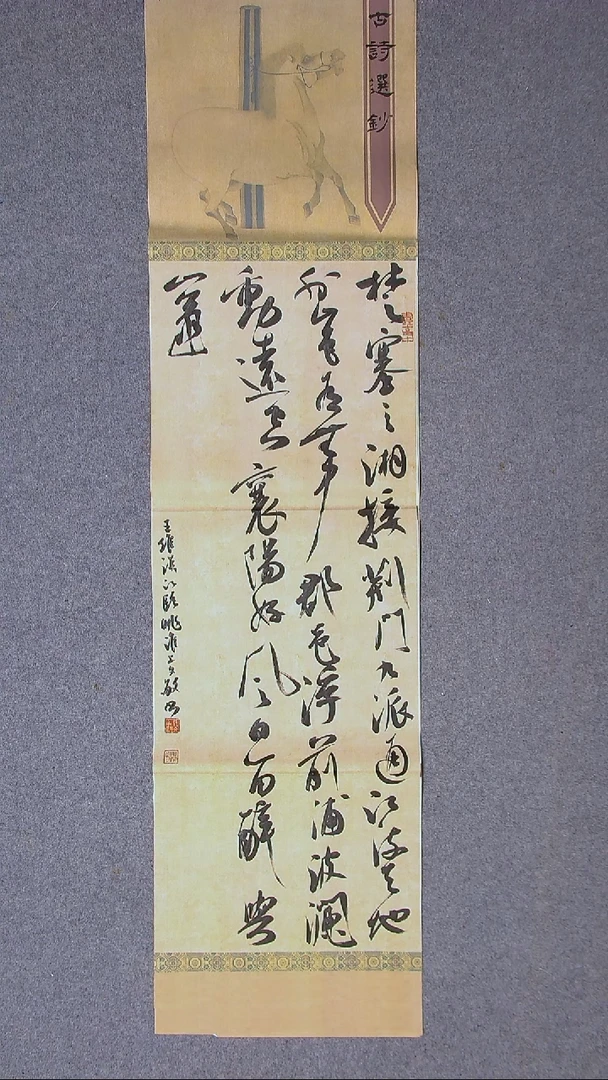 古詩選鈔
楚塞三湘接荆門九派通江流天地
外山色有無中郡邑浮前浦波瀾
動遠空襄陽好風日留醉與
山翁
王維漢江臨眺淮上